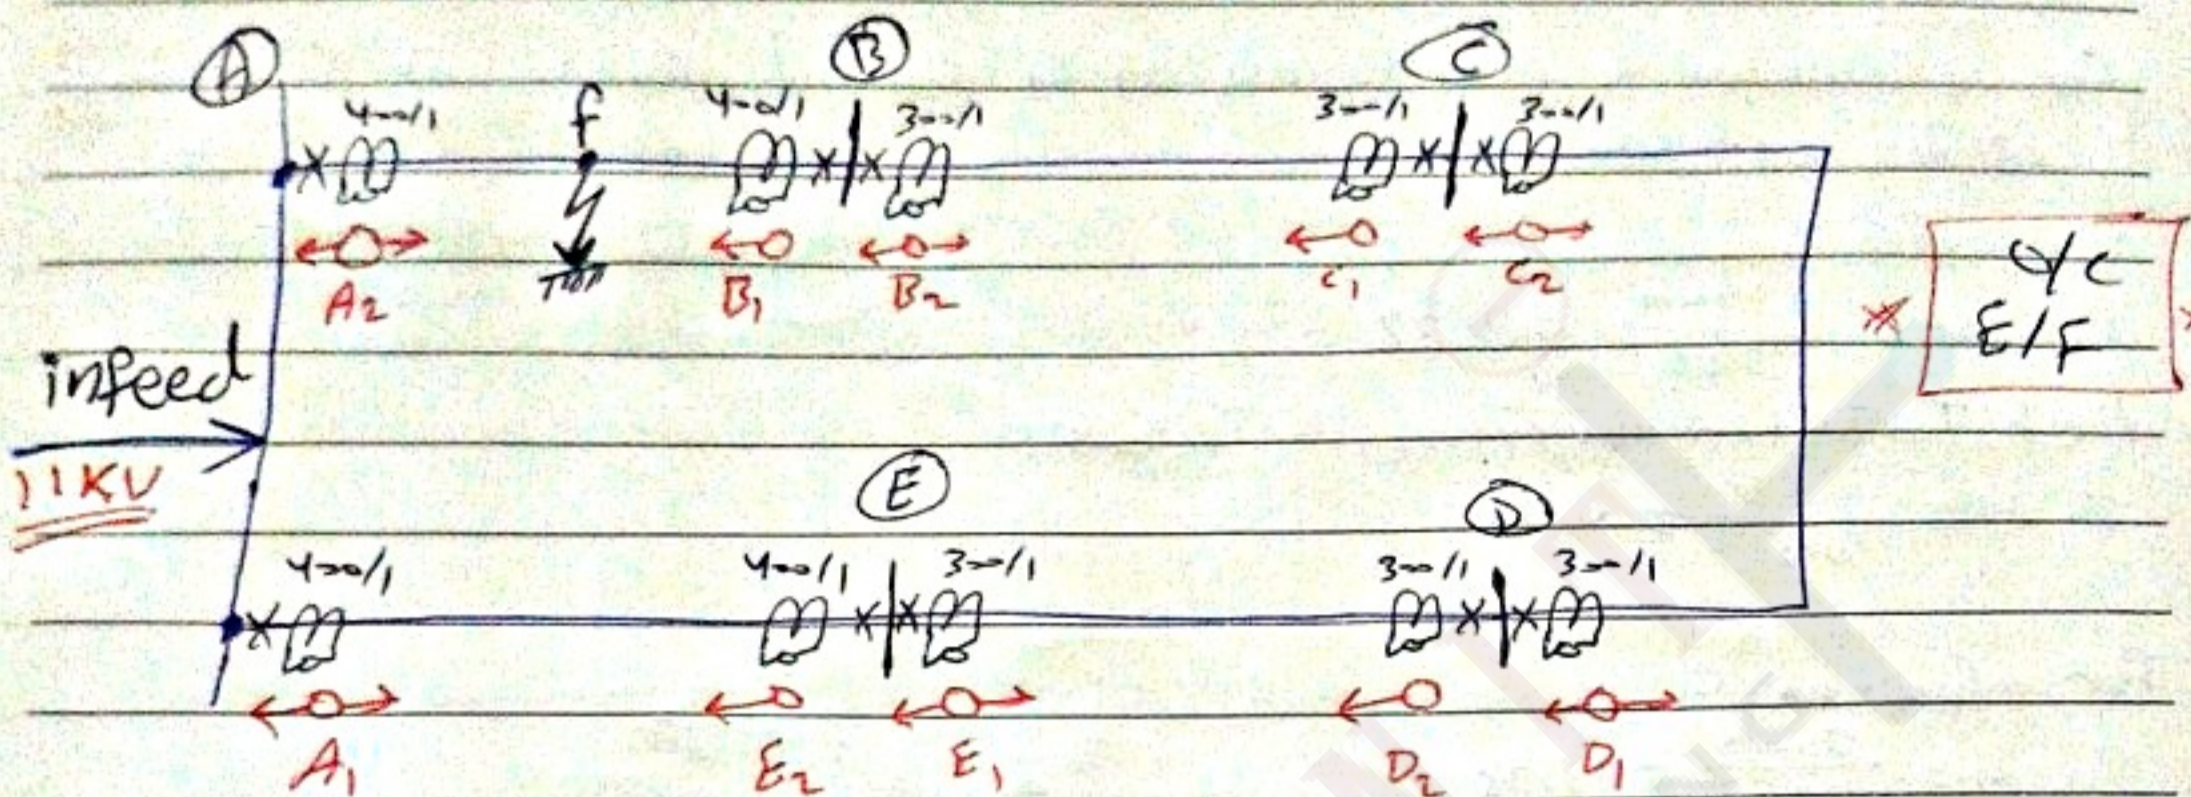 A B C
400/1 f 400/1 300/1 300/1 300/1
A2 B1 B2 C1 C2
O/C
E/F
infeed
11KV
E D
400/1 400/1 300/1 300/1 300/1
A1 E2 E1 D2 D1